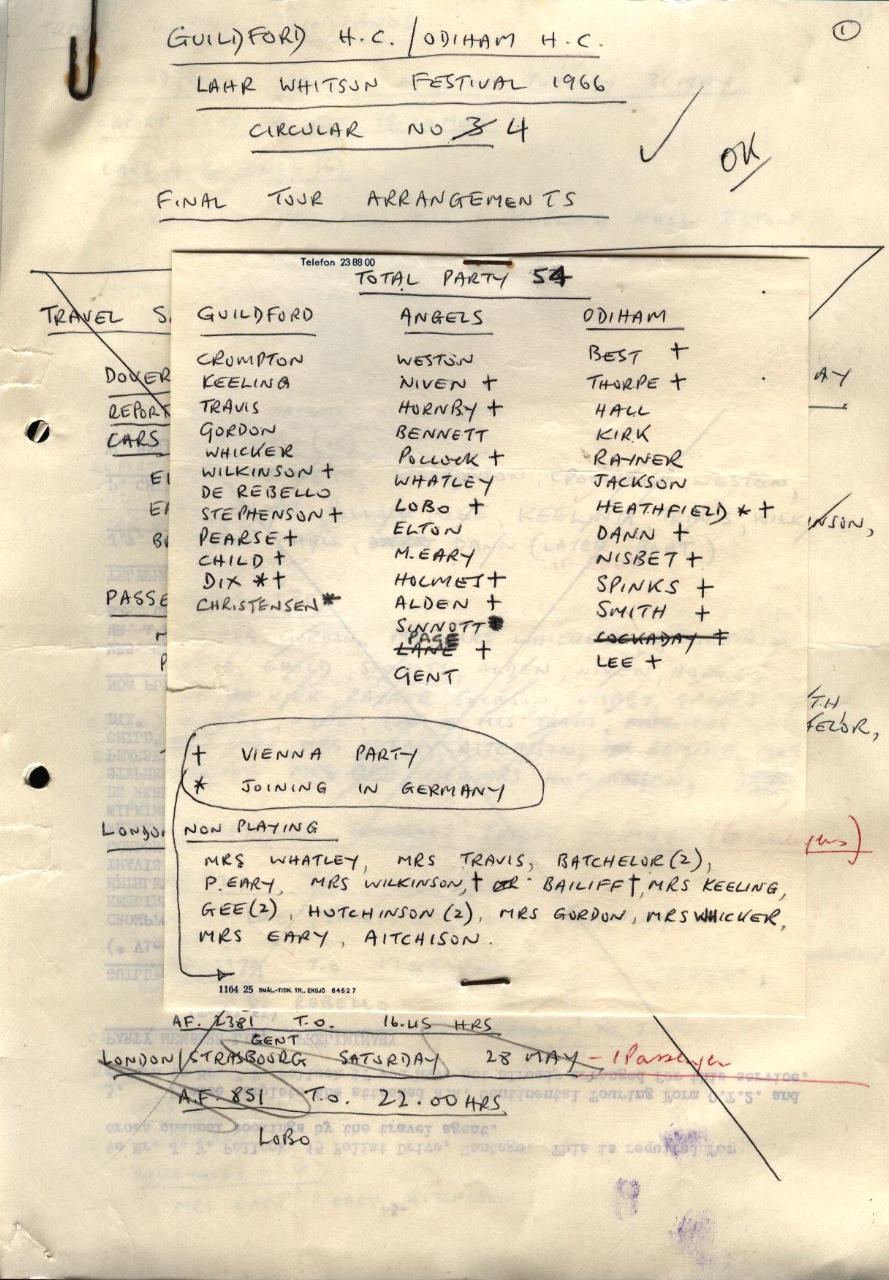 ①
GUILDFORD H.C. / ODIHAM H.C.
LAHR WHITSUN FESTIVAL 1966
CIRCULAR NO 3 4
OK
FINAL TOUR ARRANGEMENTS
Telefon 23 88 00
TOTAL PARTY 54
TRAVEL S
DOVER
REPORT
CARS
PASSE
LONDON
AY
INSON,
TH
GUILDFORD
CROMPTON
KEELING
TRAVIS
GORDON
WHICKER
WILKINSON +
DE REBELLO
STEPHENSON +
PEARSE +
CHILD +
DIX * +
CHRISTENSEN *
ANGELS
WESTON
NIVEN +
HORNBY +
BENNETT
POLLOCK +
WHATLEY
LOBO +
ELTON
M. EARY
HOLMES +
ALDEN +
SINNOTT *
PAGE
LANE +
GENT
ODIHAM
BEST +
THORPE +
HALL
KIRK
RAYNER
JACKSON
HEATHFIELD * +
DANN +
NISBET +
SPINKS +
SMITH +
COCKADAY +
LEE +
+ VIENNA PARTY
* JOINING IN GERMANY
NON PLAYING
MRS WHATLEY, MRS TRAVIS, BATCHELOR (2),
P. EARY, MRS WILKINSON, + BAILIFF +, MRS KEELING,
GEE (2), HUTCHINSON (2), MRS GORDON, MRS WHICKER,
MRS EARY, AITCHISON.
1104 25 SMÅL.-TIDN. TR., EKSJÖ 64527
A.F. 1381 T.O. 16.45 HRS
GENT
LONDON/STRASBOURG SATURDAY 28 MAY - 1 Passenger
A.F. 851 T.O. 22.00 HRS
LOBO